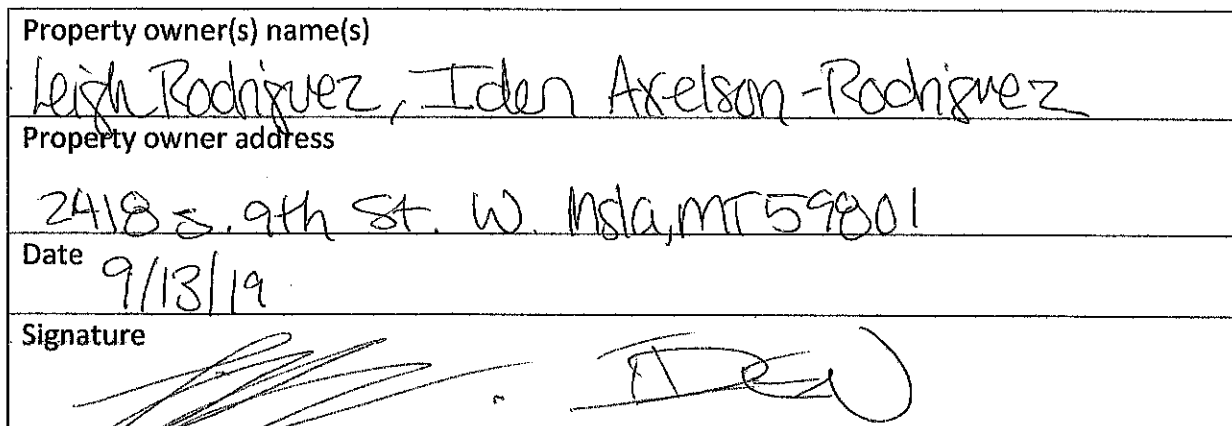 Property owner(s) name(s)
Leigh Rodriguez, Iden Axelson-Rodriguez
Property owner address
2418 S. 9th St. W. Msla, MT 59801
Date 9/13/19
Signature